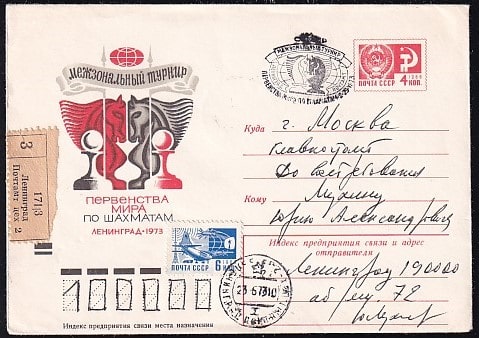 межзональный турнир
ПЕРВЕНСТВА
МИРА
ПО ШАХМАТАМ
ЛЕНИНГРАД·1973
МЕЖЗОНАЛЬНЫЙ ТУРНИР
ПОЧТА СССР 4 КОП.
1966
Куда
г. Москва
Главпочтамт
До востребования
Кому
Мухину
Юрию Александровичу
Индекс предприятия связи и адрес
отправителя
Ленинград 190000
аб ящ. 72
З
Ленинград
Почтамт цех 2
1713
ПОЧТА СССР 6 КОП
23 6 73 10
100000
Индекс предприятия связи места назначения